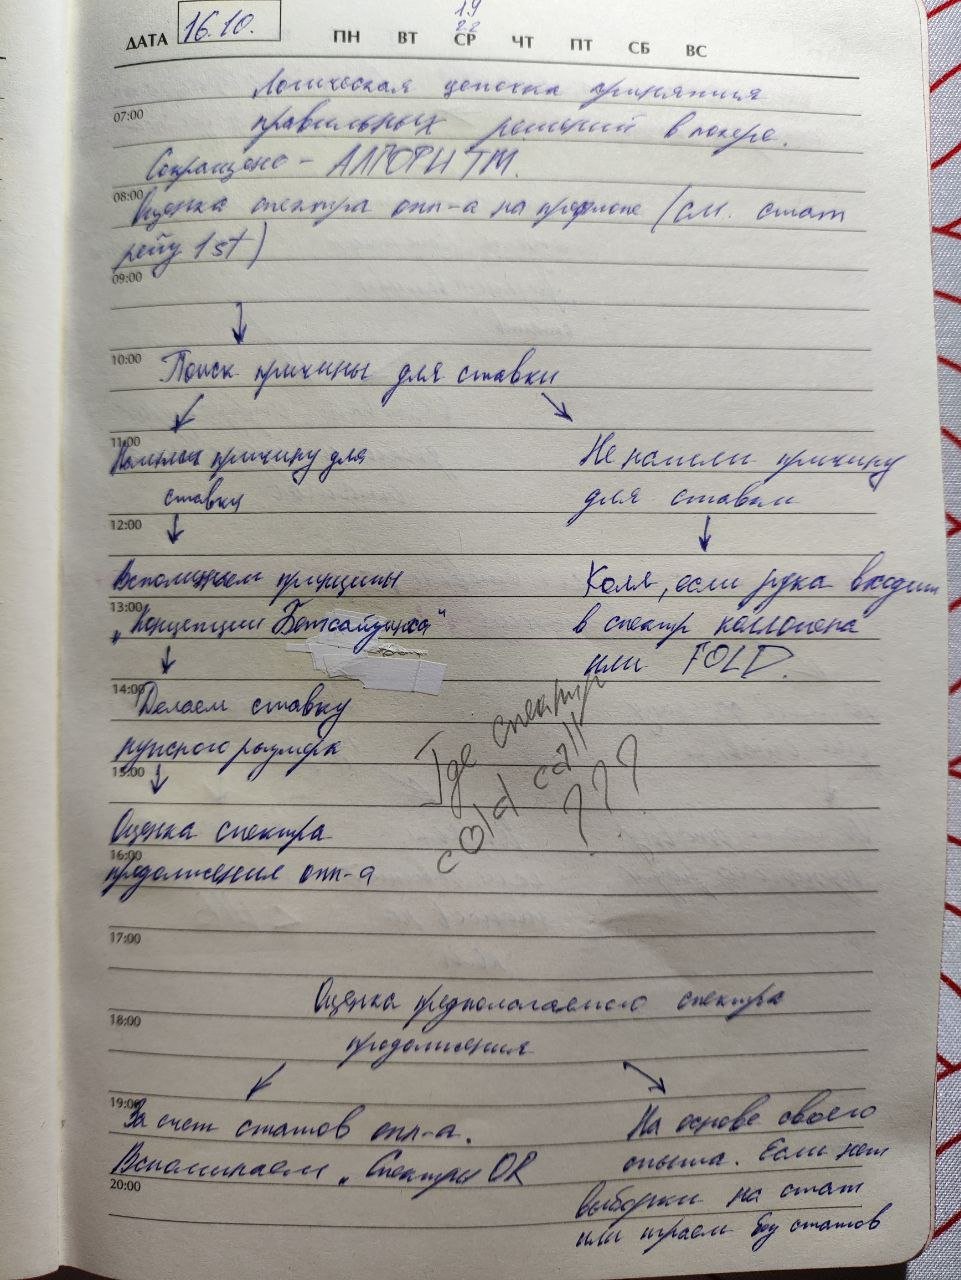 ДАТА 16.10. ПН ВТ СР ЧТ ПТ СБ ВС
19
22
Логическая цепочка принятия
07:00 правильных решений в покере.
Сокращено - АЛГОРИТМ.
08:00 Оценка спектра опп-а на префлопе (см. стат
рейз 1st)
09:00
10:00 Поиск причины для ставки
11:00
Нашли причину для
ставки
Не нашли причину
для ставки
12:00
Вспоминаем принципы
13:00
„Концепции Бетсайзинга"
Колл, если рука входит
в спектр коллопена
или FOLD.
14:00 Делаем ставку
нужного размера
15:00
Где спектр
cold call
???
Оценка спектра
16:00
продолжения опп-а
17:00
Оценка предполагаемого спектра
18:00
продолжения
19:00
За счет статов опп-а.
Вспоминаем „Спектры OR
20:00
На основе своего
опыта. Если нет
выборки на стат
или играем без статов